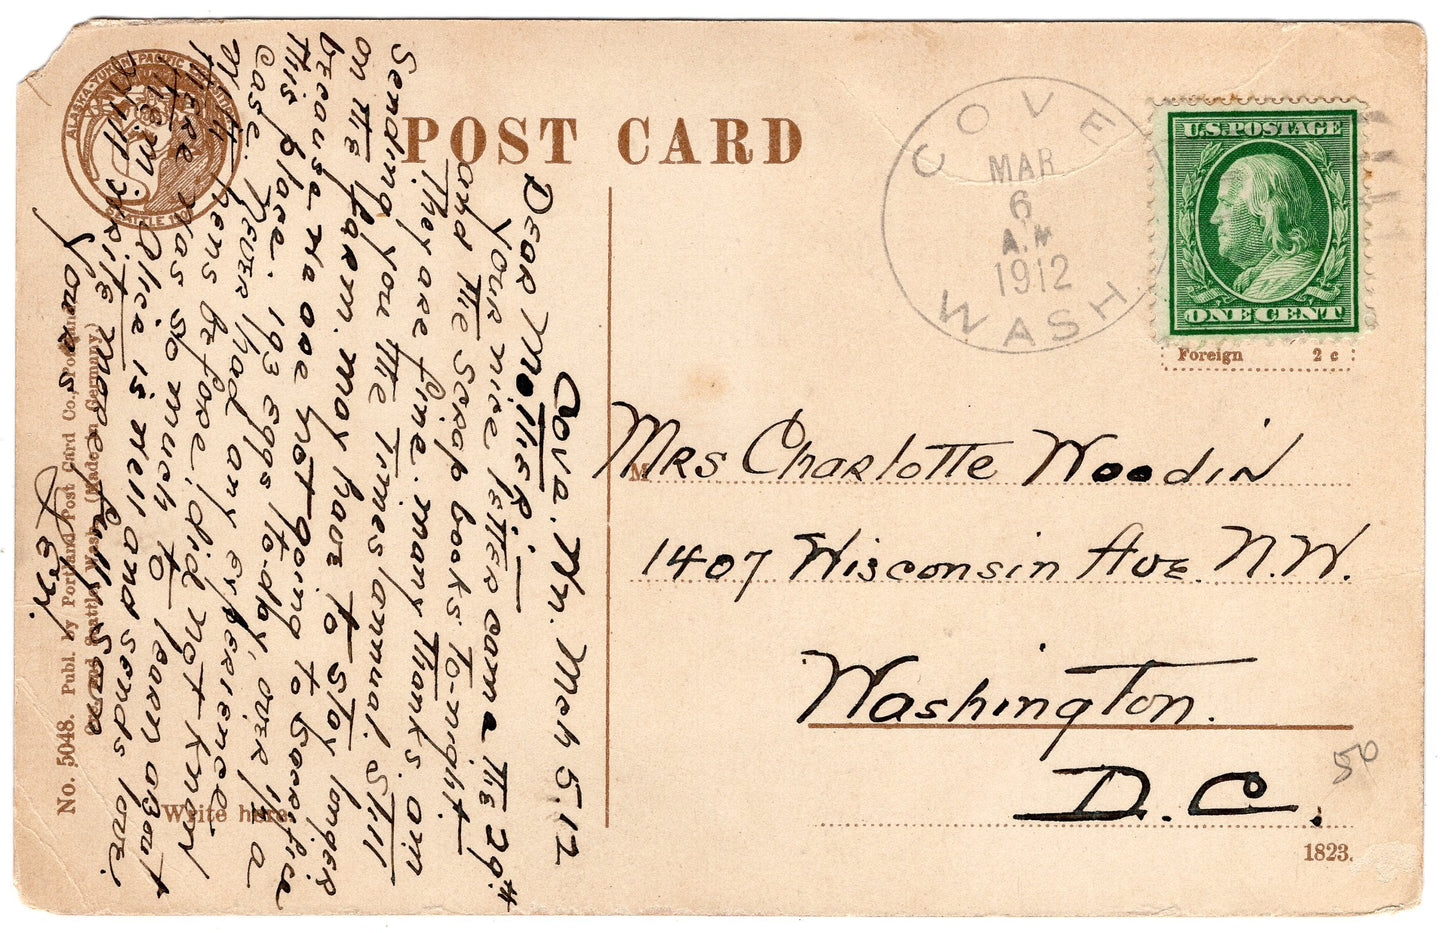 POST CARD
COVE
MAR
6
A.M
1912
WASH
U.S. POSTAGE
ONE CENT
Foreign 2 c
Mrs Charlotte Woodin
1407 Wisconsin Ave. N.W.
Washington.
D.C.
50
1823.
Cove. Wn. Mch 5, 12
Dear Mother:—
Your nice letter came the 29th
and the scrap books to-night
They are fine. many thanks. Om
sending you the Times annual. Still
on the farm. may have to stay longer
because we are not going to sacrifice
this place. 193 eggs to-day, over ½ a
case. Never had any experience
with hens before. Did not know
there was so much to learn about
them. Alice is well and sends love.
Will write more fully soon
Yours
ALASKA-YUKON-PACIFIC
SEATTLE
No. 5048. Publ. by Portland Post Card Co., Portland
and Seattle, Wash. (Made in Germany.)
Write here